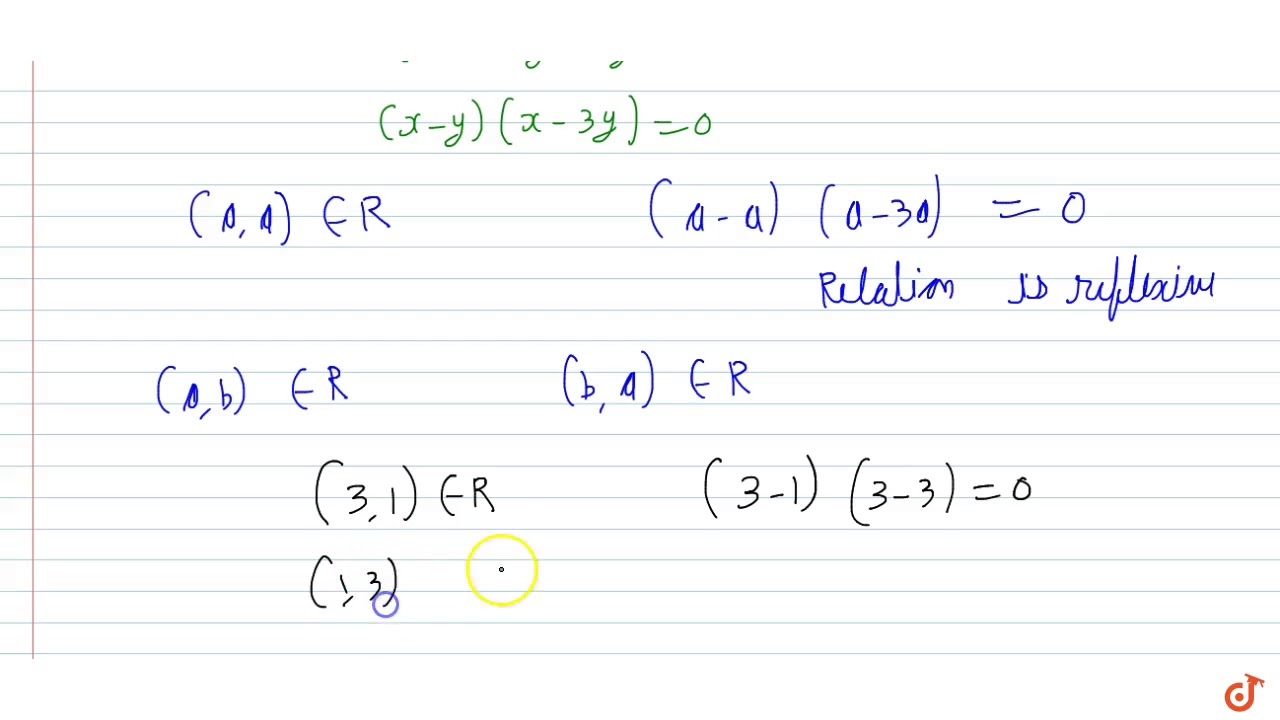 (x-y)(x-3y)=0
(a,a) ∈ R (a-a) (a-3a) = 0
Relation is reflexive
(a,b) ∈ R (b,a) ∈ R
(3,1) ∈ R (3-1) (3-3) = 0
(1,3)